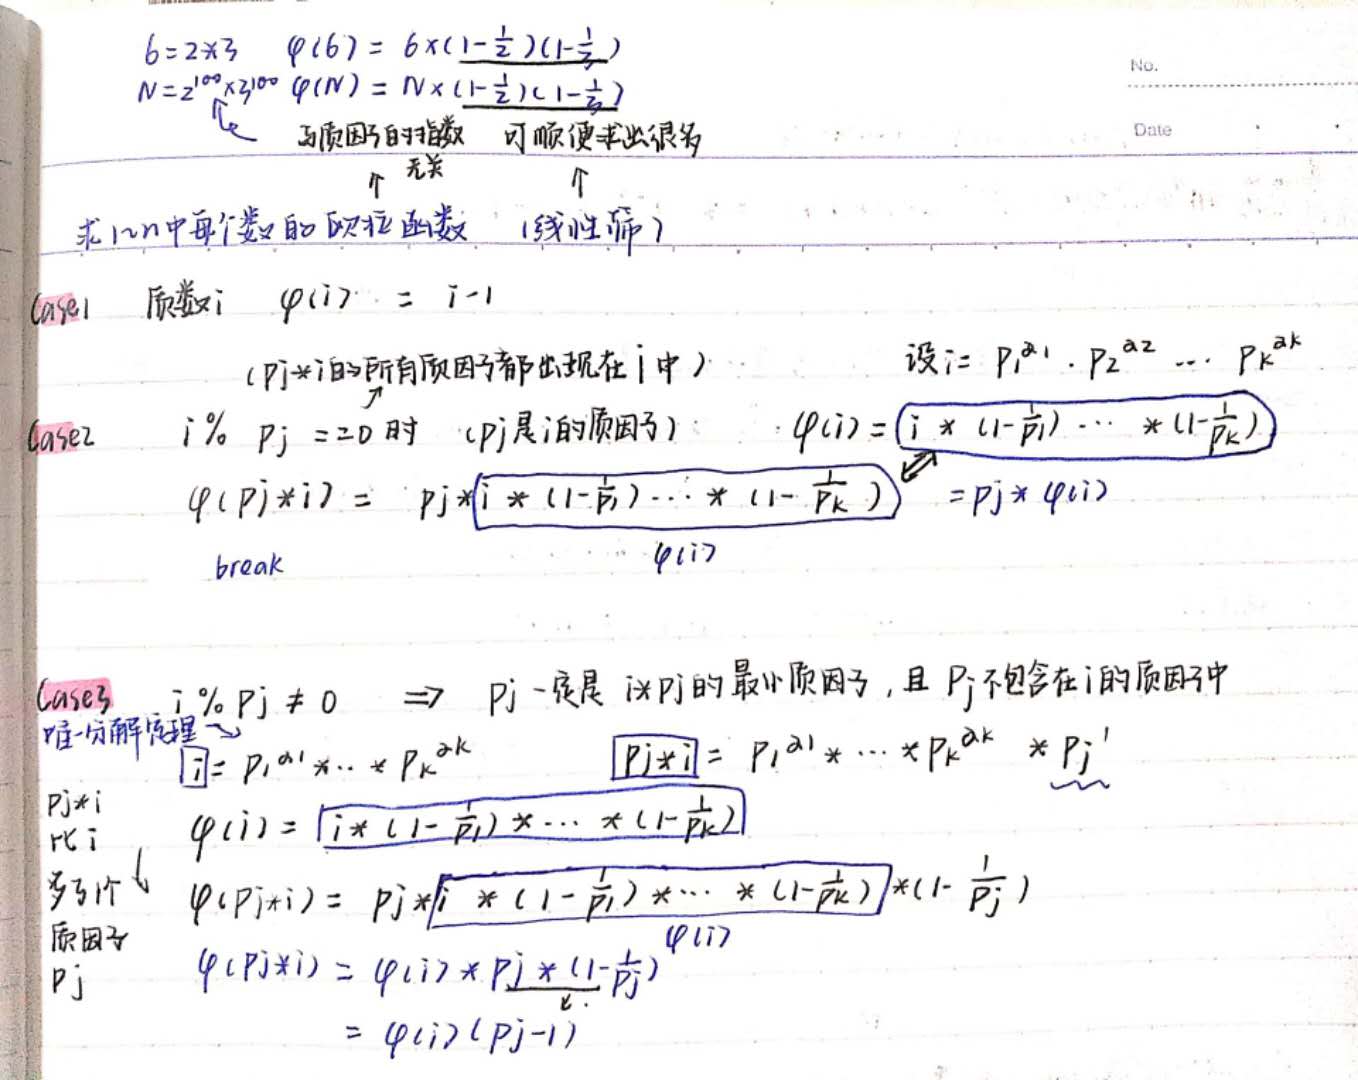 6=2*3 φ(6) = 6×(1-1/2)(1-1/3)
No.
N=2^100×3^100 φ(N) = N×(1-1/2)(1-1/3)
与质因子的指数无关 可顺便求出很多
Date
求1~n中每个数的欧拉函数 (线性筛)
Case1 质数i φ(i) = i-1
(pj*i的所有质因子都出现在i中) 设i= P1^a1 · P2^a2 ... Pk^ak
Case2 i % pj ==0时 (pj是i的质因子) φ(i)= i * (1-1/P1) ... * (1-1/Pk)
φ(pj*i) = pj* i * (1-1/P1) ... * (1-1/Pk) = pj * φ(i)
φ(i)
break
Case3 i % pj ≠ 0 ⇒ Pj一定是 i*pj的最小质因子,且 Pj不包含在i的质因子中
唯一分解定理
i = P1^a1 *...* Pk^ak pj*i = P1^a1 * ... * Pk^ak * Pj^1
φ(i) = i * (1-1/P1) * ... * (1-1/Pk)
pj*i
比i
多了1个
质因子
Pj
φ(pj*i) = pj* i * (1-1/P1) * ... * (1-1/Pk) *(1-1/Pj)
φ(i)
φ(pj*i) = φ(i) * Pj * (1-1/Pj)
= φ(i)(pj-1)